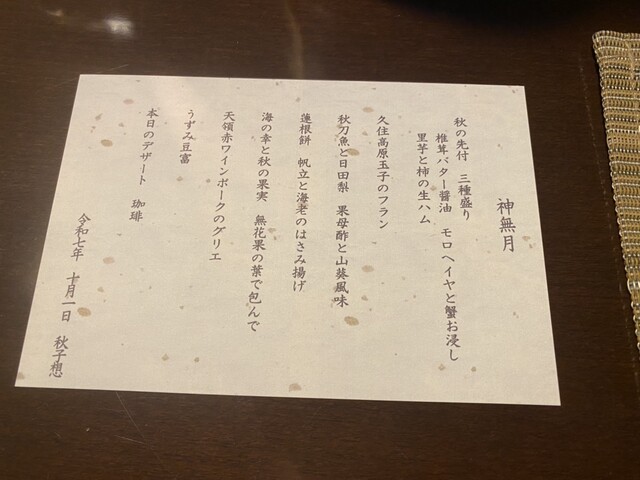 神無月
秋の先付　三種盛り
椎茸バター醤油　モロヘイヤと蟹お浸し
里芋と柿の生ハム
久住高原玉子のフラン
秋刀魚と日田梨　果母酢と山葵風味
蓮根餅　帆立と海老のはさみ揚げ
海の幸と秋の果実　無花果の葉で包んで
天領赤ワインポークのグリエ
うずみ豆富
本日のデザート　珈琲
令和七年　十月一日　秋子想